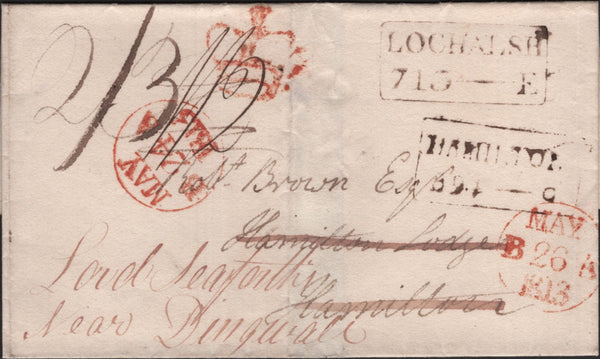 LOCHALSH
713 — E
HAMILTON
— C
MAY
B 26 A
1813
MAY
Robt. Brown Esqr
Hamilton Lodge
Hamilton
Lord Seaforth
Near Dingwall